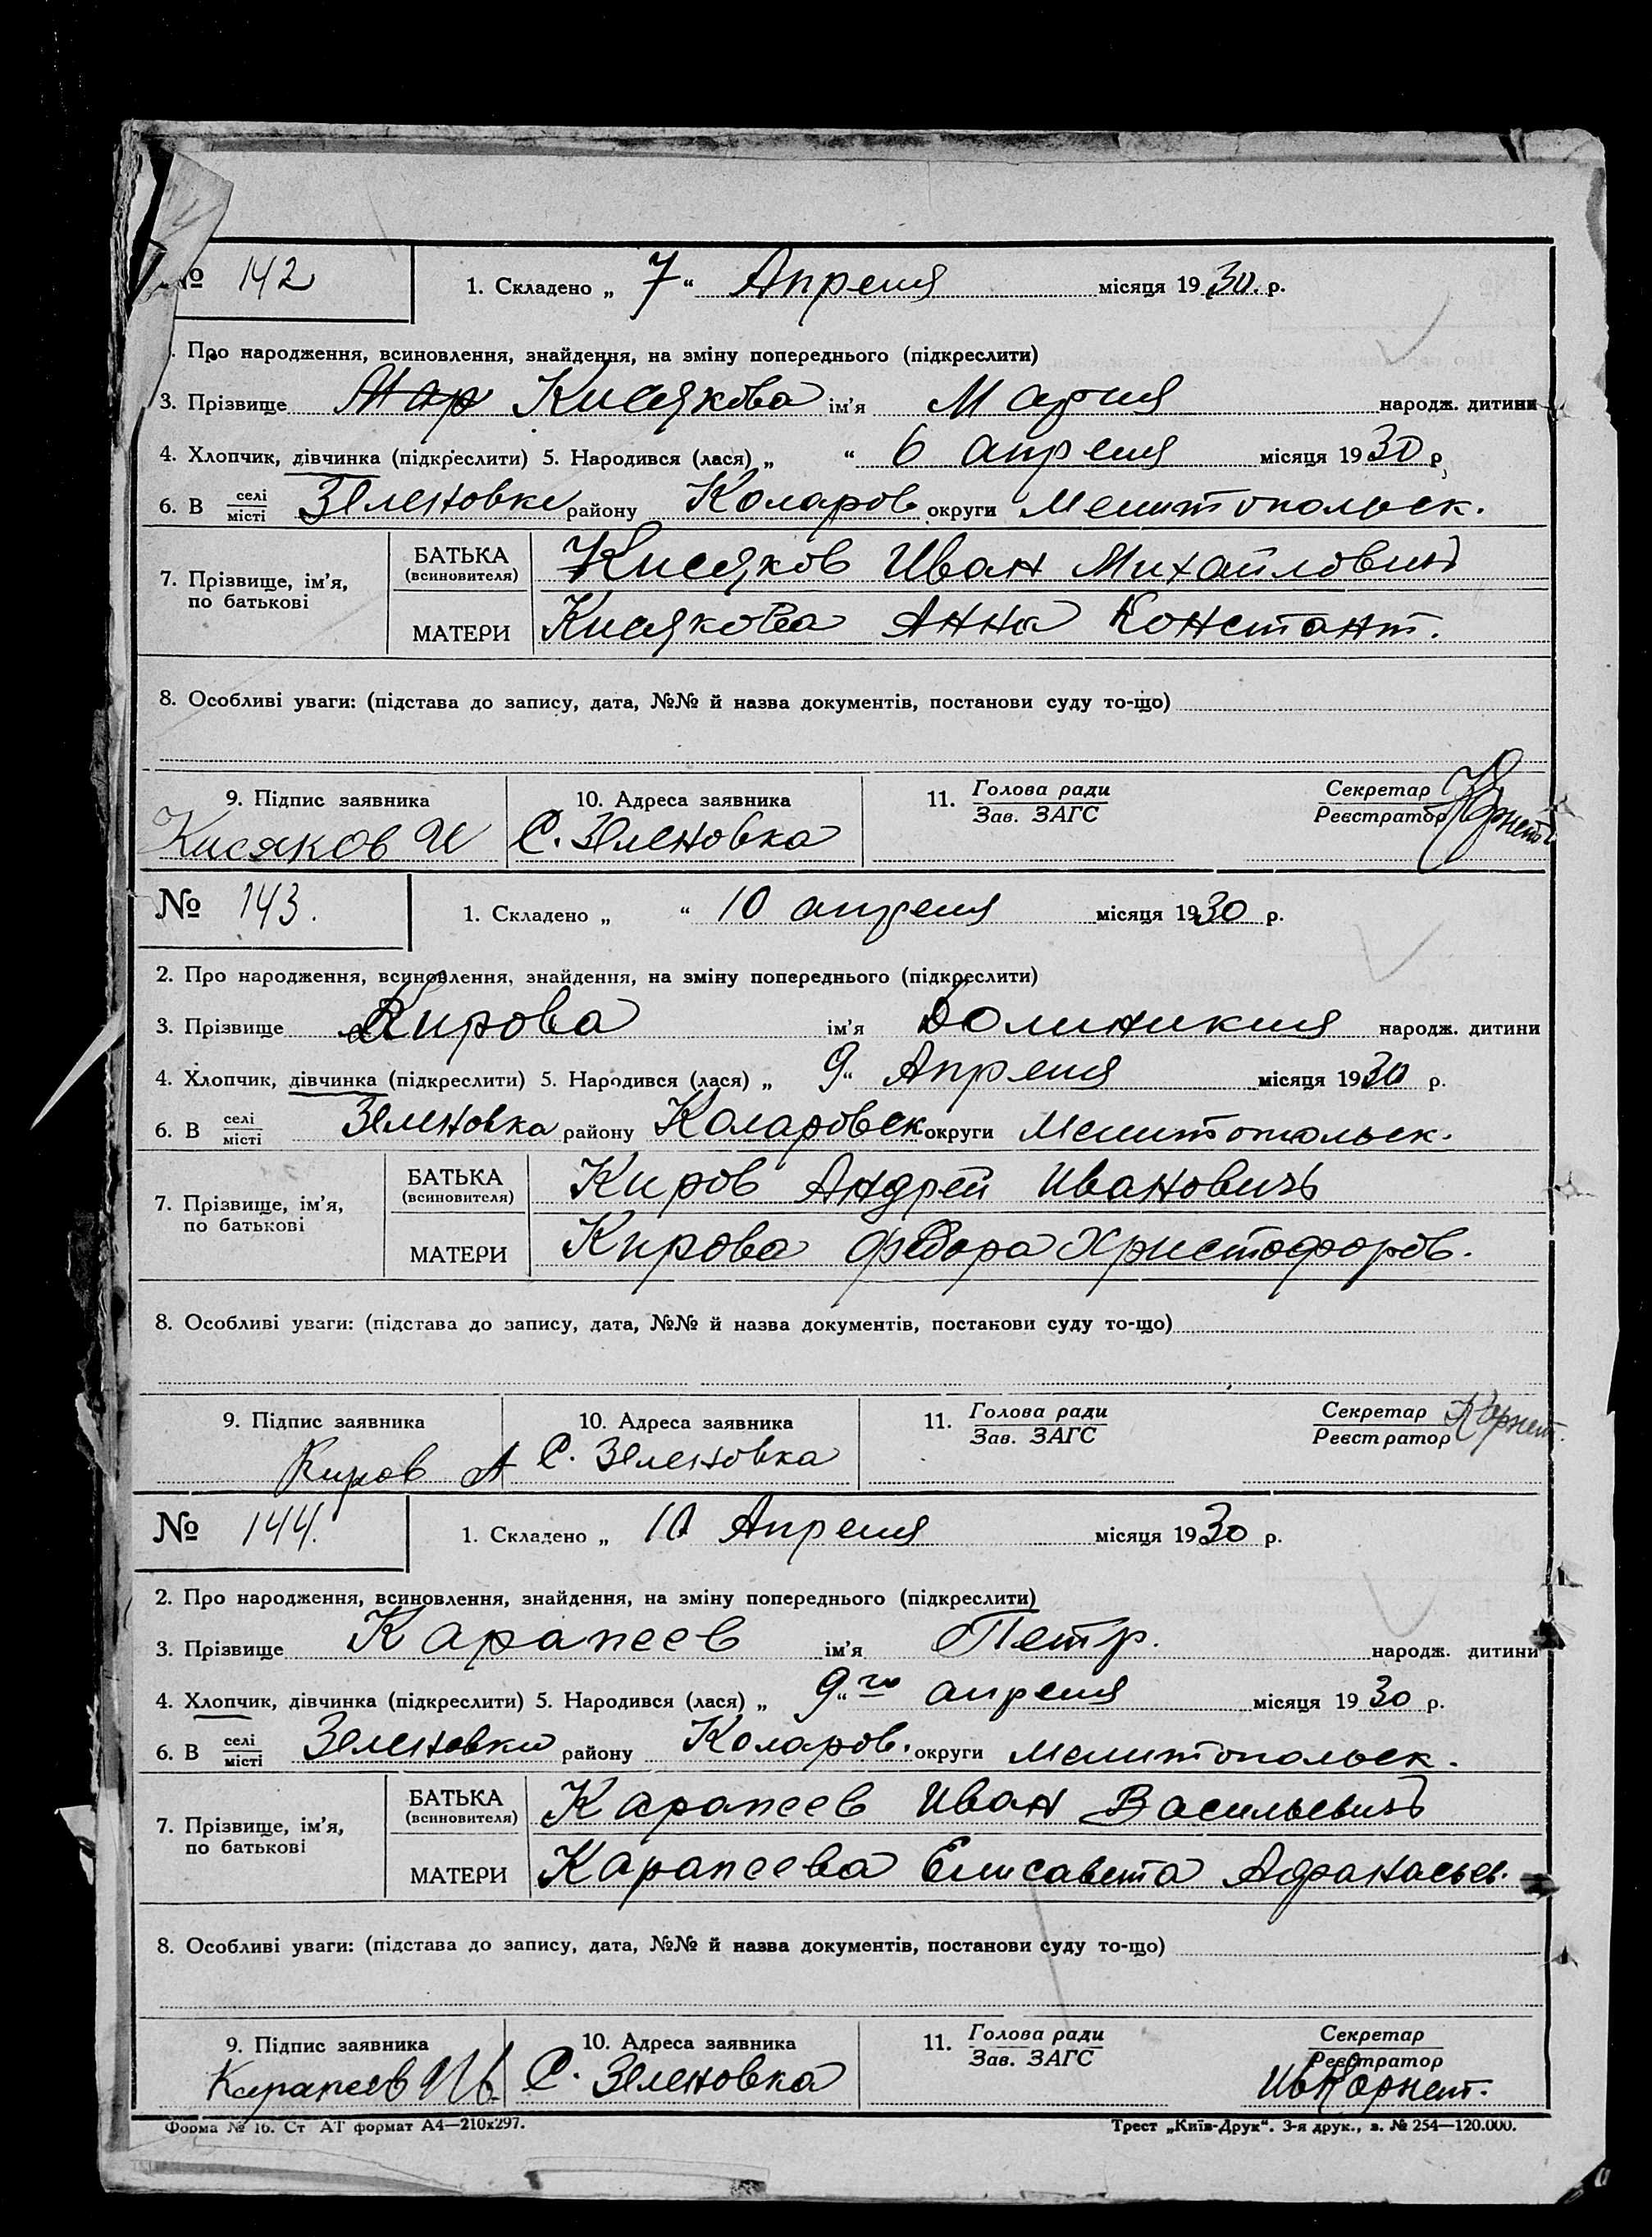 № 142 1. Складено „ 7 “ Апреля місяця 1930. р.
Про народження, всиновлення, знайдення, на зміну попереднього (підкреслити)
3. Прізвище Мар Кисякова ім'я Мария народж. дитини
4. Хлопчик, дівчинка (підкреслити) 5. Народився (лася) „ “ 6 апреля місяця 1930 р
6. В селі/місті Зеленовки району Коларов округи Мелитопольск.
7. Прізвище, ім'я, по батькові
БАТЬКА (всиновителя) Кисяков Иван Михайлович
МАТЕРИ Кисякова Анна Констант.
8. Особливі уваги: (підстава до запису, дата, №№ й назва документів, постанови суду то-що)
9. Підпис заявника 10. Адреса заявника 11. Голова ради/Зав. ЗАГС Секретар/Реєстратор
Кисяков И С. Зеленовка
№ 143. 1. Складено „ “ 10 апреля місяця 1930 р.
2. Про народження, всиновлення, знайдення, на зміну попереднього (підкреслити)
3. Прізвище Кирова ім'я Долиникия народж. дитини
4. Хлопчик, дівчинка (підкреслити) 5. Народився (лася) „ 9 “ Апреля місяця 1930 р.
6. В селі/місті Зеленовка району Коларовск округи Мелитопольск.
7. Прізвище, ім'я, по батькові
БАТЬКА (всиновителя) Киров Андрей Ивановичъ
МАТЕРИ Кирова Федора Христофоров.
8. Особливі уваги: (підстава до запису, дата, №№ й назва документів, постанови суду то-що)
9. Підпис заявника 10. Адреса заявника 11. Голова ради/Зав. ЗАГС Секретар/Реєстратор
Киров А С. Зеленовка
№ 144. 1. Складено „ 10 Апреля місяця 1930 р.
2. Про народження, всиновлення, знайдення, на зміну попереднього (підкреслити)
3. Прізвище Карапеев ім'я Петр. народж. дитини
4. Хлопчик, дівчинка (підкреслити) 5. Народився (лася) „ 9 “ го апреля місяця 1930 р.
6. В селі/місті Зеленовки району Коларов. округи Мелитопольск.
7. Прізвище, ім'я, по батькові
БАТЬКА (всиновителя) Карапеев Иван Васильевичъ
МАТЕРИ Карапеева Елисавета Афанасьев.
8. Особливі уваги: (підстава до запису, дата, №№ й назва документів, постанови суду то-що)
9. Підпис заявника 10. Адреса заявника 11. Голова ради/Зав. ЗАГС Секретар/Реєстратор
Карапеев Ив. С. Зеленовка
Форма № 16. Ст АТ формат А4—210x297. Трест „Київ-Друк“. 3-я друк., з. № 254—120.000.